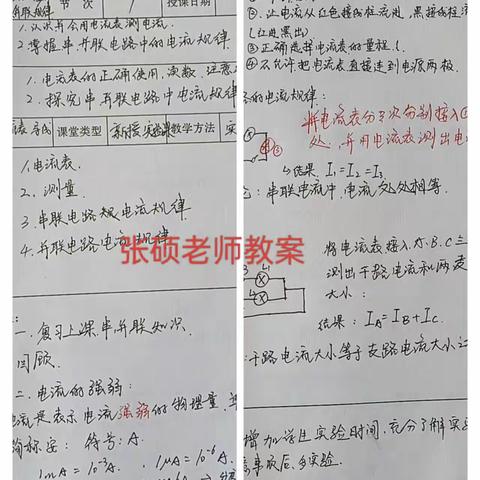 节 次
授课日期
1. 认识并会用电流表测电流.
2. 掌握串并联电路中的电流规律.
1. 电流表的正确使用、读数、注意
2. 探究串并联电路中电流规律
课堂类型 新授实验课 教学方法
1. 电流表.
2. 测量.
3. 串联电路电流规律.
4. 并联电路电流规律.
一. 复习上课串、并联知识.
回顾.
二. 电流的强弱:
流是表示电流强弱的物理量,
简称安: 符号:A.
1mA = 10⁻³A. , 1μA = 10⁻⁶A
②. 让电流从红色接线柱流进,黑接线
(红进黑出)
③ 正确选择电流表的量程.
④ 不允许把电流表直接连到电源两极.
的电流规律:
将电流表分三次分别接入①
处,并用电流表测出电
结果. I₁=I₂=I₃.
: 串联电流中,电流处处相等.
将电流表接入A、B、C三
测出干路电流和两支
大小:
L₁
结果: I_A=I_B+I_C.
: 干路电流大小等于支路电流大小之
增加学生实验时间,充分了解实
后,多实验.
张硕老师教案